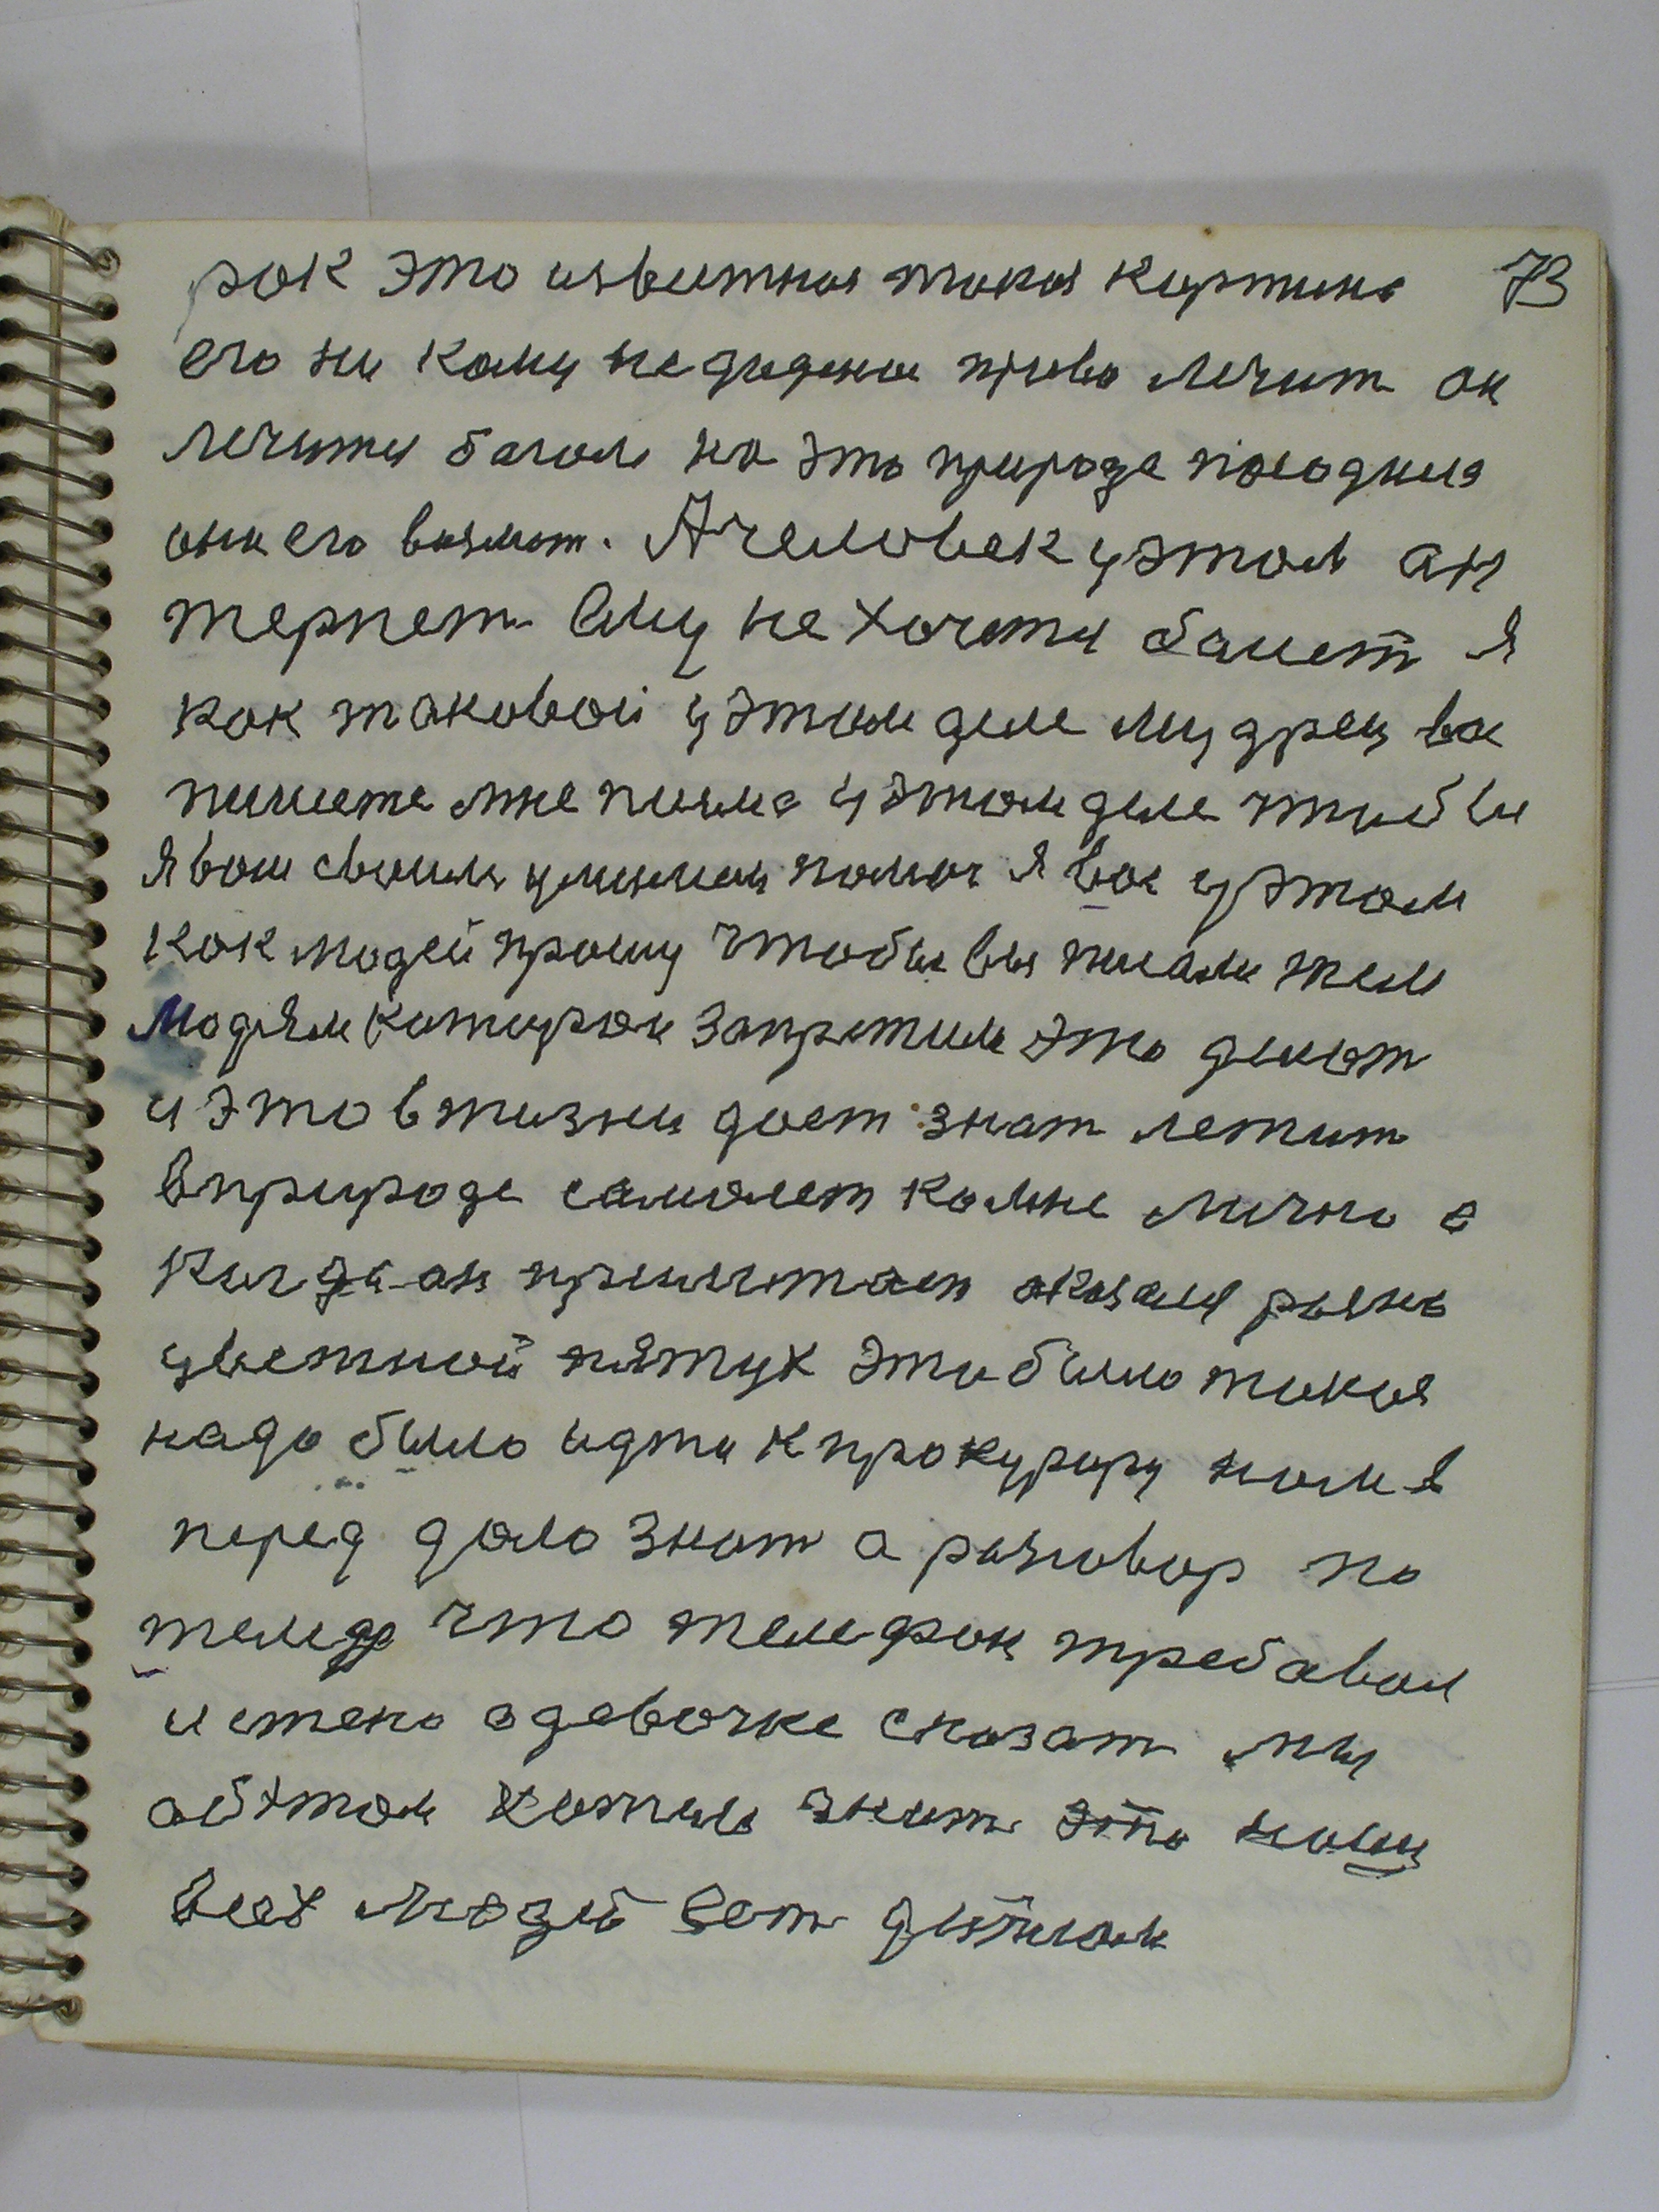 рок это извитная такая картина 73
его ни кому не дадено право лечит он
лечитця багом но это природа
они его възмот. А человек у этом ан
терпет ему не хочитця балет я
как таковой у этом деле мудрец вы
пишете мне письма у этом деле чтобы
я вам своим умением помог я вас у этом
как людей прошу чтобы вы писали тем
людям каторои запретили это делат
и это в жизни дает знат летит
в природе самолет ко мне лично а
когда он прилитает
цветной пятух это было такоя
надо было идти к прокурору нам в
перед дало знат а разговор по
что телефон требовал
истено о девочке сказат мы
об этом хотим знат это нашы
всех людей ест